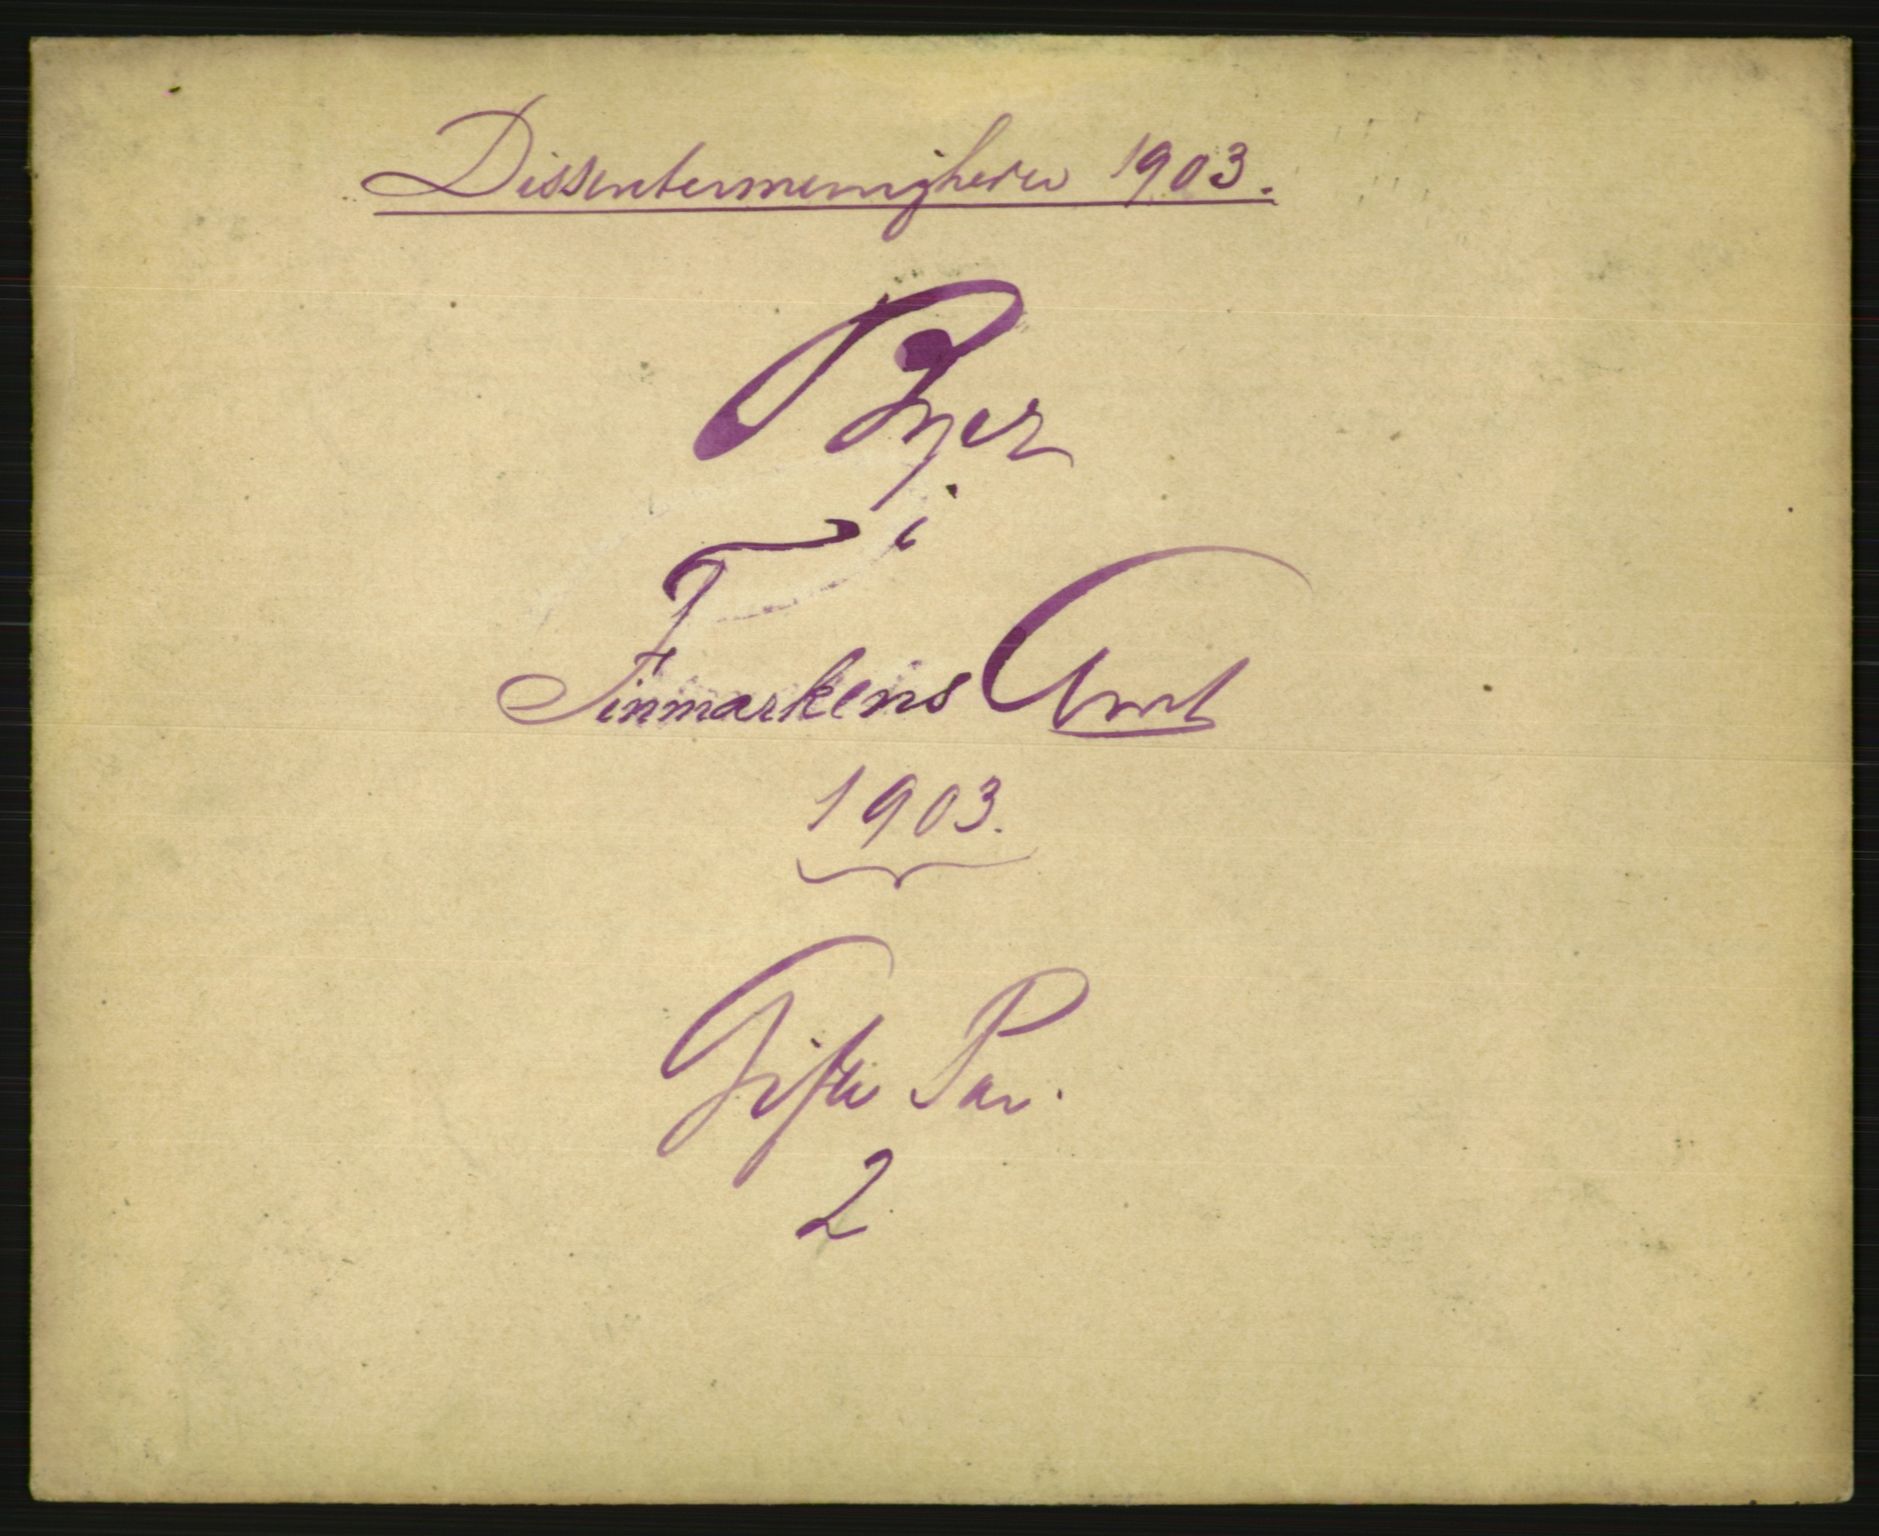 Dissentermenigheder 1903.
Byer
i
Finmarkens Amt
1903.
Gifte Par.
2